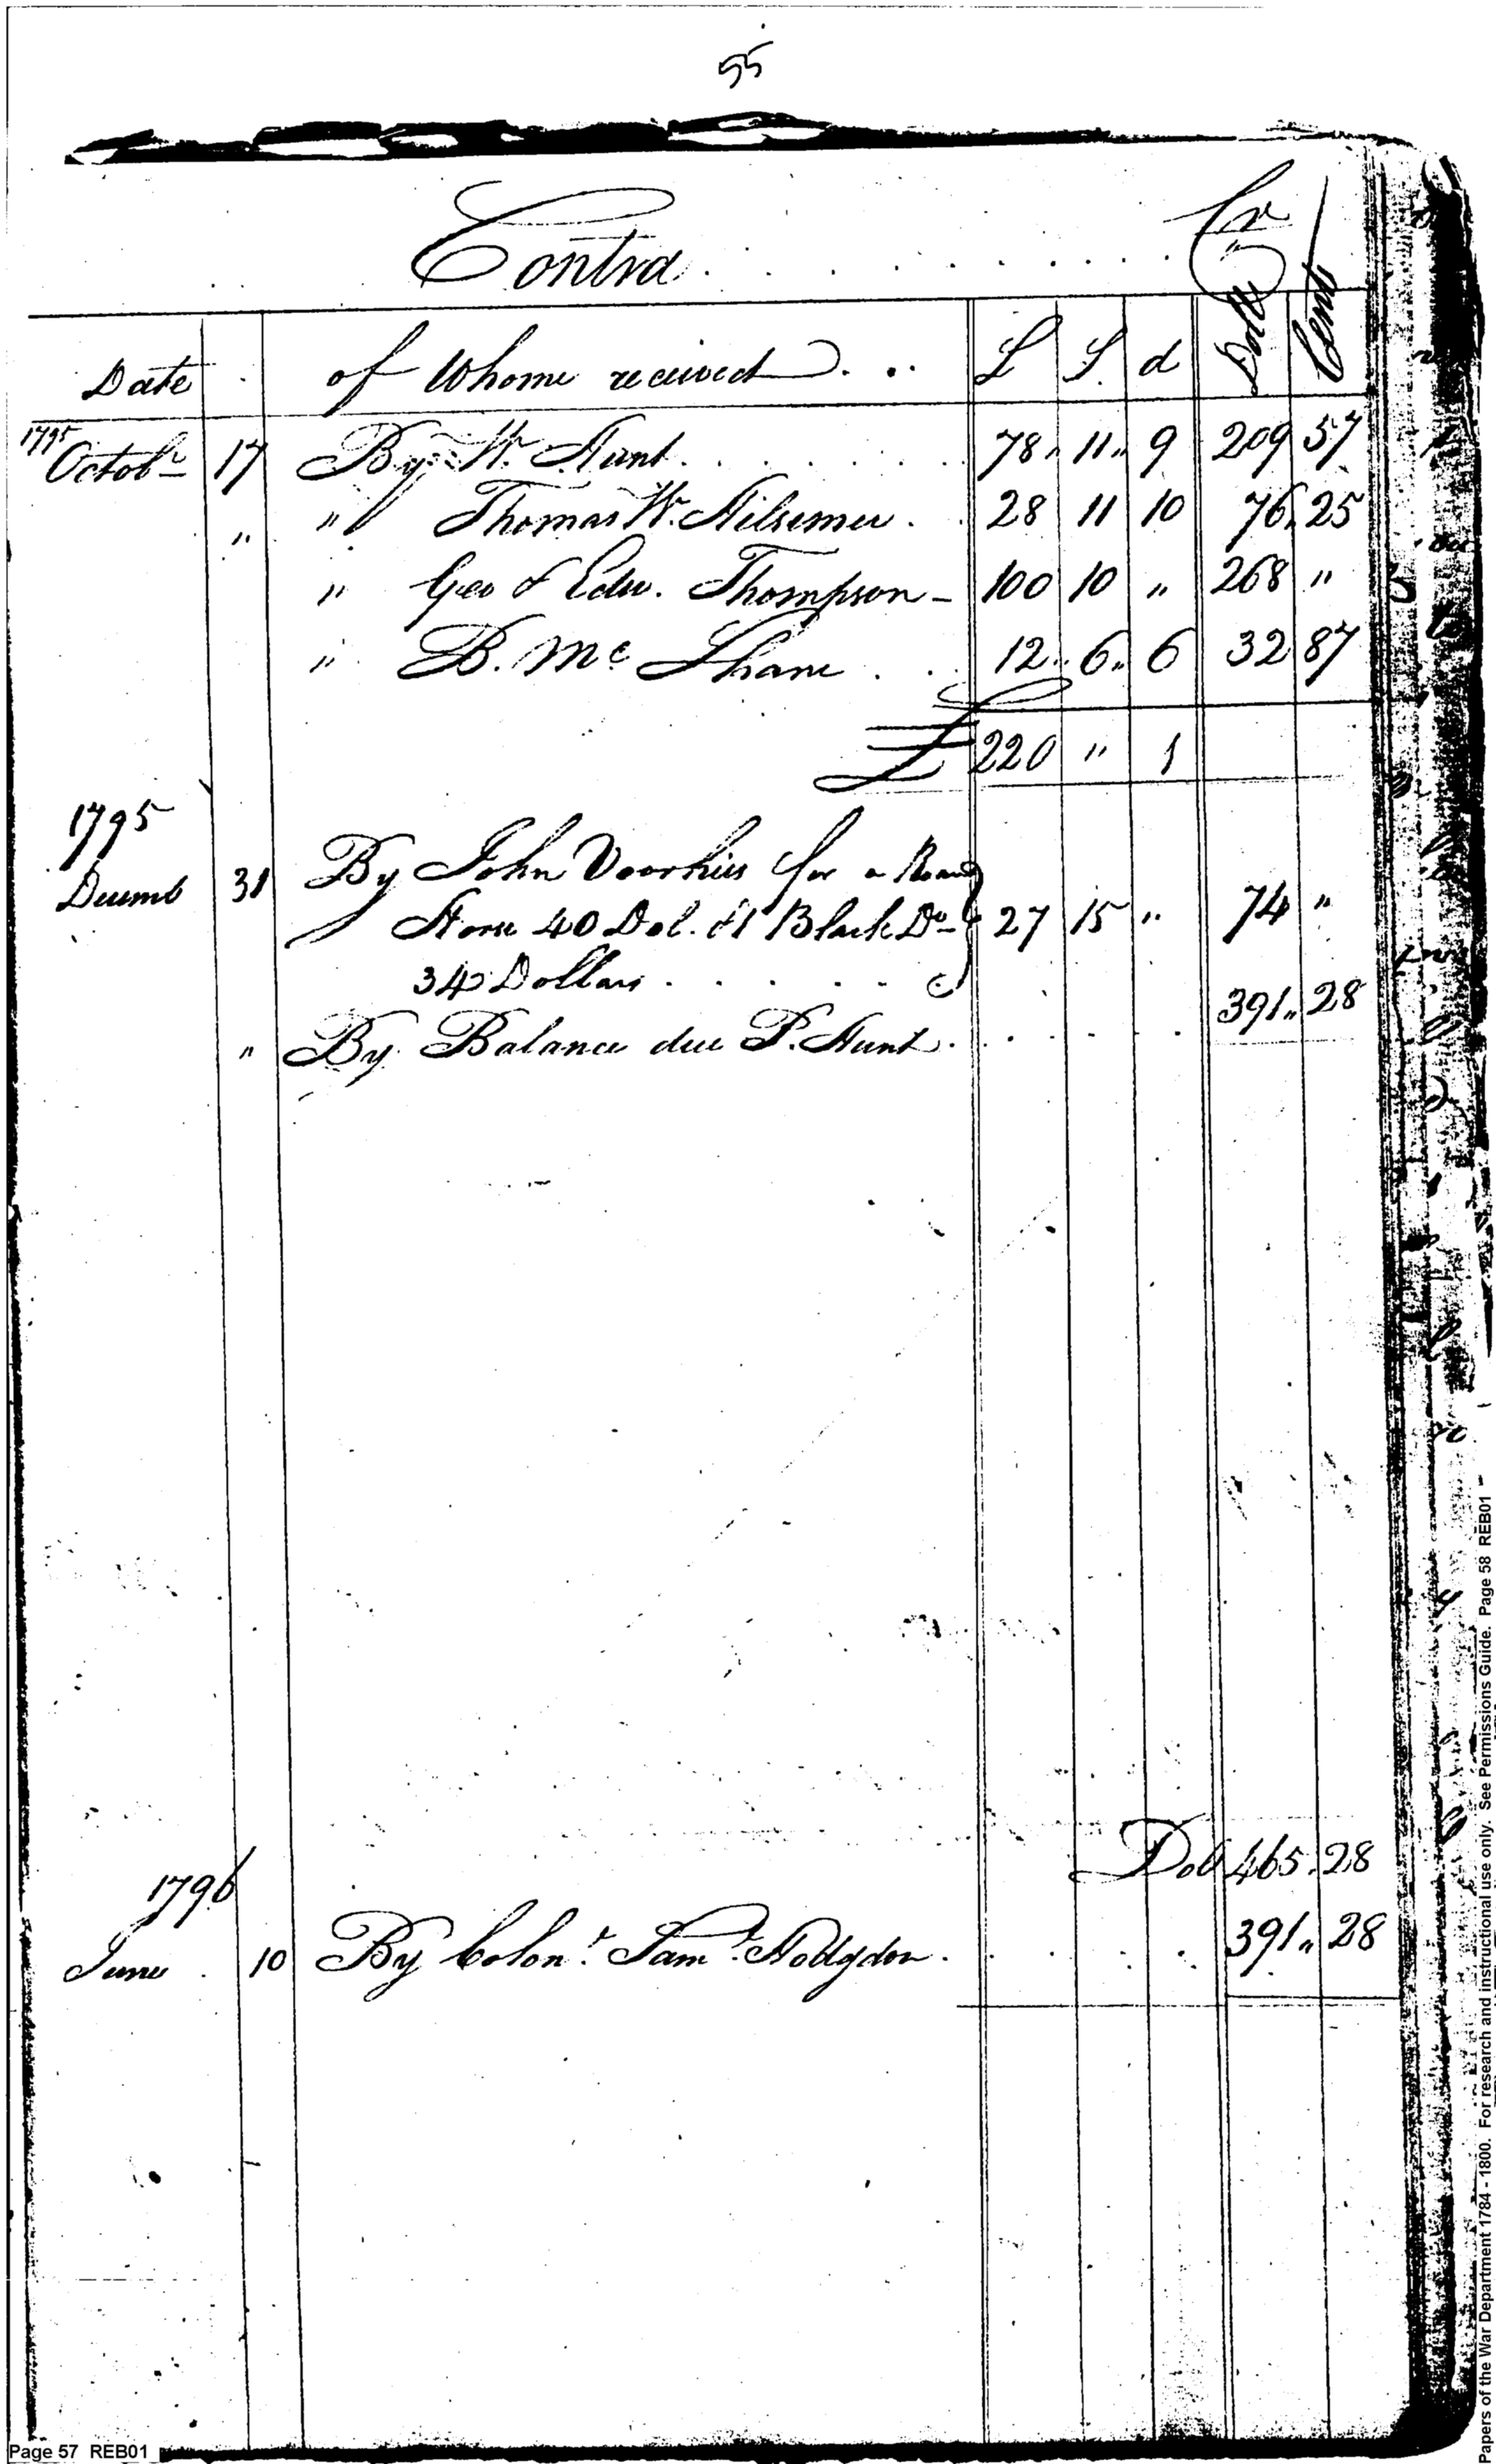 55
Contra . . . . . . . . . . . Cr
Date of Whome received . . . £ S. d Doll Cent
1795
Octobr 17 By W. Hunt . . . . . . . . 78 " 11 " 9 209 57
" " Thomas W. . . 28 11 10 76 . 25
" Geo & Edw. Thompson - 100 10 " 268 "
" B. Mc Shane . . 12 " 6 " 6 32 87
£ 220 " 1
1795
Decemb 31 By John Voorhies for a
Horse 40 Dol. & 1 Black Do 27 15 " 74 "
34 Dollars . . . . .
" By Balance due P. Hunt . . . . . . 391 " 28
Dol 465 . 28
1796
June . 10 By Colonl. Saml. Hodgdon . . . . . 391 " 28
Page 57 REB01
Papers of the War Department 1784 - 1800. For research and instructional use only. See Permissions Guide. Page 58 REB01